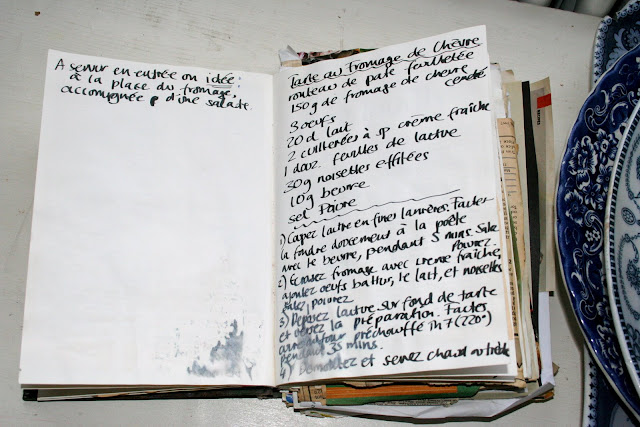 A servir en entrée ou idée:
à la place du fromage,
accompagnée d'une salade.
Tarte au fromage de Chèvre
rouleau de pate feuilletée
150g de fromage de chevre
cendré
3 oeufs
20 cl lait
2 cuillerées à sp crème fraîche
1 douz. feuilles de laitue
30g noisettes effilées
10g beurre
sel Poivre
1) Coupez laitue en fines lanières. Faites
la fondre doucement à la poêle
avec le beurre, pendant 5 mins. Salez
Poivrez.
2) Ecrasez fromage avec creme fraîche,
ajoutez oeufs battus, le lait, et noisettes
salez, poivrez
3) Déposez laitue sur fond de tarte
et versez la préparation. Faites
cuire au four préchauffé Th 7 (220°)
pendant 35 mins.
4) Démoulez et servez chaud ou tiède